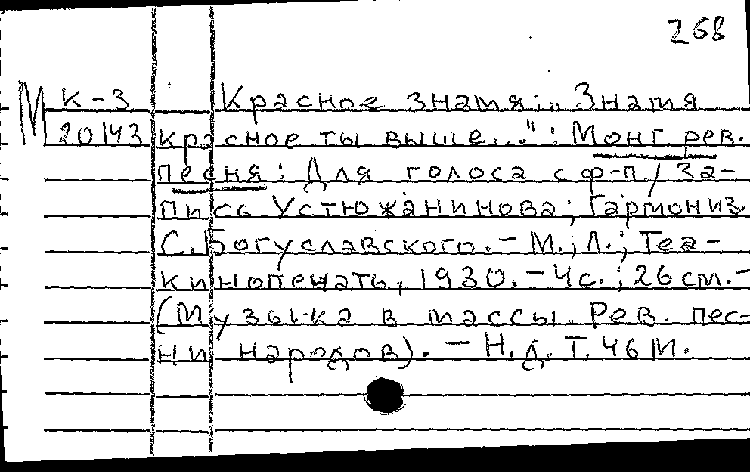 268
М К-3 Красное знамя: „Знамя
20143 красное ты выше..." : Монг. рев.
песня : Для голоса с ф-п / За-
пись Устюжанинова; Гармониз.
С. Богуславского. - М.; Л.; Теа-
кинопечать, 1930. - 4с.; 26см. -
(Музыка в массы. Рев. пес-
ни народов). - Н.д. Т. 46 М.